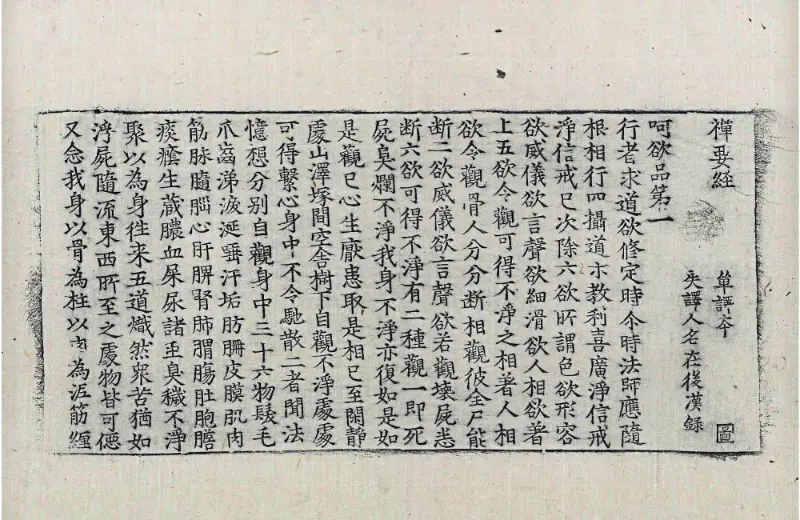 禪要經
單譯本
圖
失譯人名在後漢錄
呵欲品第一
行者求道欲修定時尒時法師應隨
根相行四攝道示教利喜廣淨信戒
淨信戒已次除六欲所謂色欲形容
欲威儀欲言聲欲細滑欲人相欲著
上五欲令觀可得不淨之相著人相
欲令觀骨人分分断相觀彼全尸能
断二欲威儀欲言聲欲若觀壞屍悉
断六欲可得不淨有二種觀一即死
屍臭爛不淨我身不淨亦復如是如
是觀已心生厭患取是相已至閑靜
處山澤塚間空舍樹下自觀不淨處處
可得繫心身中不令馳散二者聞法
憶想分別自觀身中三十六物髮毛
爪齒涕淚涎唾汗垢肪𦙽皮膜肌肉
筋脉髓腦心肝脾腎肺胃腸肚胞膽
痰癊生蔵膿血屎尿諸虫臭穢不淨
聚以為身往来五道熾然衆苦猶如
浮屍隨流東西所至之處物皆可
又念我身以骨為柱以肉為泥筋纒